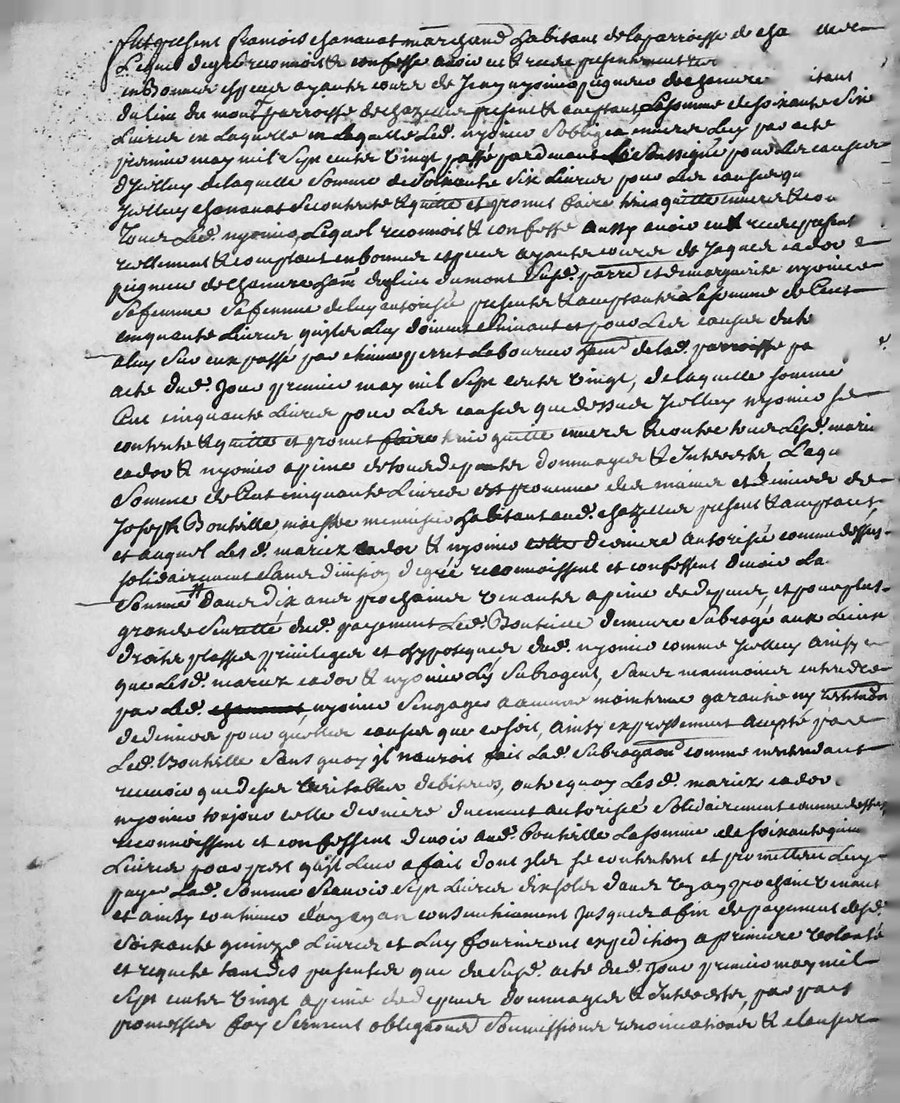 fut present francois chanavat marchand habitant de la parroisse de cha
Lequel de gré reconnoit & confesse avoir eu & receu presentement
en bonnes especes ayants cours de Jean nyoniso peigneur de chanvre itant
du lieu du mont parroisse de chazelles present & acceptant La somme de soixante six
Livres en Laquelle en laquelle Led. nyoniso s'obligea envers Luy par acte
premier may mil sept cents vingt passé pardevant Le soussigné pour Les causes
d'Icelluy de laquelle somme de soixante six Livres pour Les causes qu
Icelluy chanavat se contente & quitte et promet faire tenir quitte envers & con
tous Led. nyoniso, Lequel reconnoit & confesse aussy avoir eu & receu presen
reellement & comptant en bonnes especes ayants cours de Jaques cador
peigneur de chanvre ham. du lieu du mont susd. parre et de marguerite nyoniso
sa femme sa femme de luy autorisée presents & acceptants La somme de Cent
cinquante Livres qu'ils Luy doivent et pour Les causes
a luy sur eux passé par et Laboureur de lad. parroisse pa
acte dud. Jour premier may mil sept cents vingt, de laquelle somme
Cent cinquante Livres pour Les causes que dessus Icelluy nyoniso se
contente & quitte et promet faire tenir quitte envers & contre tous Lesd. mariez
cador & nyoniso a peine de tous depents dommages & Interests, Laqu
somme de Cent cinquante Livres est provenue des mains et deniers de
Joseph Bouteille, maistre menuisier habitant aud. chazelles present & acceptant
et auquel Les d. mariez cador & nyoniso cette derniere autorisée comme dessus
solidairement sans division de gré reconnoissent et confessent devoir La
somme dans dix ans prochains venants a peine de depens, et pour plus
grande seureté dud. payement Led. Bouteille demeure subrogé aux Lieux
droits places privileges et hypoteques dud. nyoniso comme Icelluy ainsy
que Lesd. mariez cador & nyoniso L'y subrogent, sans neanmoins entendre
par Led. nyoniso s'engager a aucune maintenue garantie ny restitution
de deniers pour quelles causes que ce soit, ainsy expressement accepté par
Led. Bouteille sans quoy il n'auroit fait Lad. subrogaon. comme n'entendant
recevoir que de ses veritables debiteurs, outre quoy Lesd. mariez cador
nyoniso toujours cette derniere duement autorisée solidairement comme dessus
reconnoissent et confessent devoir aud. bouteille La somme de soixante quin
Livres pour prest qu'il Leur a fait dont ils se contentent et promettent Luy
payer Lad. somme scavoir sept Livres dix sols dans un an prochain venant
et ainsy continuer d'an en an consecutivement jusques a fin de payement desd.
soixante quinze Livres et Luy fourniront expedition a premiere volonté
et requete tant des presentes que du susd. acte dud. Jour premier may mil
sept cents vingt a peine de depens dommages & Interests, par pact
promesses foy serment obligaons soumissions renonciations & clauses